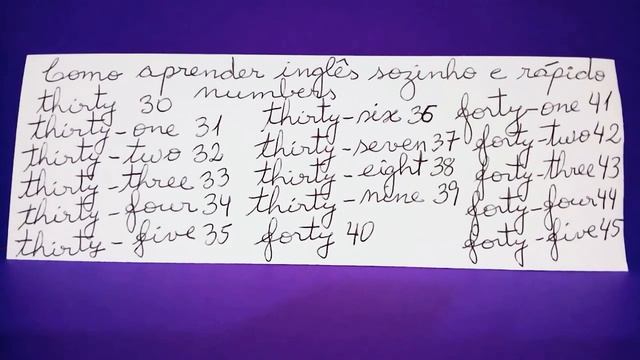 Como aprender inglês sozinho e rápido
numbers
thirty 30
thirty-one 31
thirty-two 32
thirty-three 33
thirty-four 34
thirty-five 35
thirty-six 36
thirty-seven 37
thirty-eight 38
thirty-nine 39
forty 40
forty-one 41
forty-two 42
forty-three 43
forty-four 44
forty-five 45